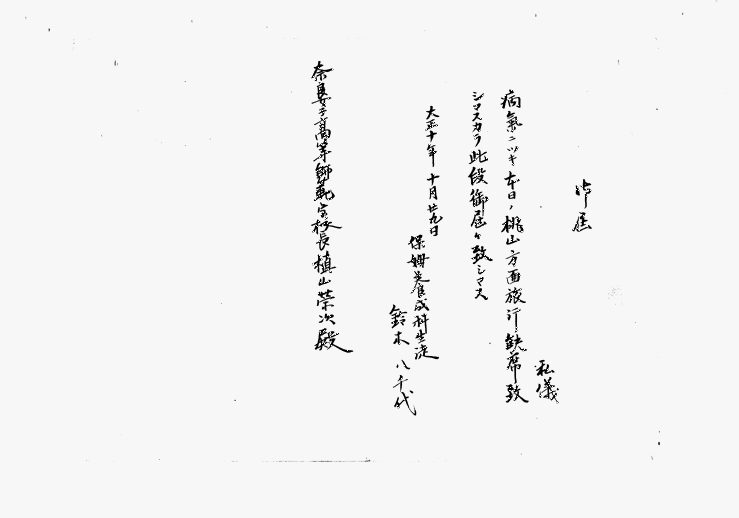 御届
私儀
病氣ニツキ本日ノ桃山方面旅行缺席致
シマスカラ此段御届ケ致シマス
大正十年十月廿九日
保姆養成科生徒
鈴木八千代
奈良女子高等師範學校長槙山榮次殿